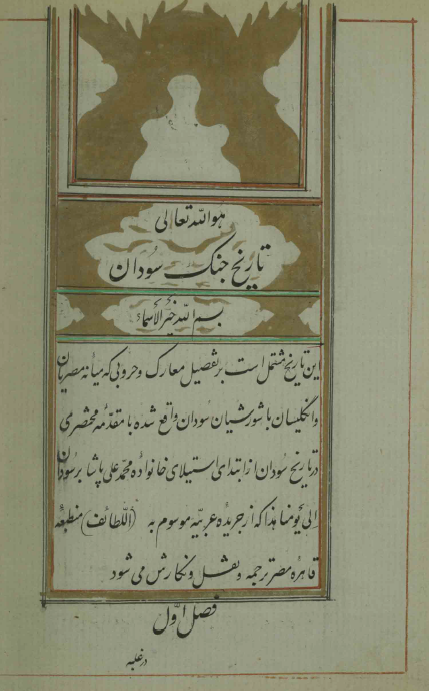 هو الله تعالی
تاریخ جنک سودان
بسم الله خیر الاسماء
این تاریخ مشتمل است بر تفصیل معارک و حروبی که میانه مصریان
و انکلیسان با شورشیان سودان واقع شده با مقدمه مختصری
در تاریخ سودان از ابتدای استیلای خانواده محمد علی پاشا بر سودان
الی یومنا هذا که از جریده عربیه موسوم به (اللطائف) منطبعه
قاهره مصر ترجمه و نقل و نکارش می شود
فصل اول
در غلبه